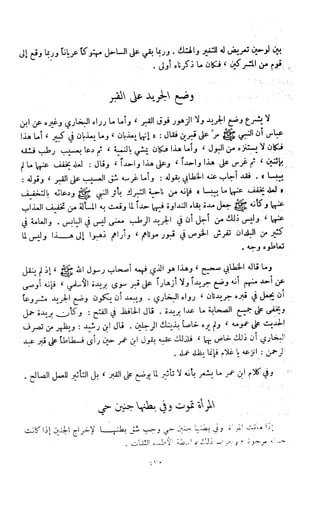 بين لوحين تعريض له للتغير والهتك. وربما بقي على الساحل مهتوكا عريانا وربما وقع إلى
قوم من المشركين، فكان ما ذكرناه أولى.
وضع الجريد على القبر
لا يشرع وضع الجريد ولا الزهور فوق القبر، وأما ما رواه البخاري وغيره عن ابن
عباس أن النبي ﷺ مرّ على قبرين فقال: « إنهما يعذبان، وما يعذبان في كبير، أما هذا
فكان لا يستنزه من البول، وأما هذا فكان يمشي بالنميمة، ثم دعا بعسيب رطب فشقه
باثنين، ثم غرس على هذا واحداً، وعلى هذا واحداً، وقال: لعله يخفف عنهما ما لم
ييبسا ». فقد أجاب عنه الخطابي بقوله: وأما غرسه شق العسيب على القبر، وقوله:
« لعله يخفف عنهما ما لم ييبسا » فإنه من ناحية التبرك بأثر النبي ﷺ ودعائه بالتخفيف
عنهما وكأنه ﷺ جعل مدة بقاء النداوة فيهما حداً لما وقعت به المسألة من تخفيف العذاب
عنهما، وليس ذلك من أجل أن في الجريد الرطب معنى ليس في اليابس. والعامة في
كثير من البلدان تفرش الخوص في قبور موتاهم، وأراهم ذهبوا إلى هذا وليس لما
تعاطوه وجه.
وما قاله الخطابي صحيح، وهذا هو الذي فهمه أصحاب رسول الله ﷺ، إذ لم ينقل
عن أحد منهم أنه وضع جريداً ولا أزهاراً على قبر سوى بريدة الأسلمي، فإنه أوصى
أن يجعل في قبره جريدتان، رواه البخاري. ويبعد أن يكون وضع الجريد مشروعاً
ويخفى على جميع الصحابة ما عدا بريدة. قال الحافظ في الفتح: وكأن بريدة حمل
الحديث على عمومه، ولم يره خاصا بذينك الرجلين. قال ابن رشيد: ويظهر من تصرف
البخاري أن ذلك خاص بهما، فلذلك عقبه بقول ابن عمر حين رأى فسطاطاً على قبر عبد
الرحمن: انزعه يا غلام فإنما يظله عمله.
وفي كلام ابن عمر ما يشعر بأنه لا تأثير لما يوضع على القبر، بل التأثير للعمل الصالح.
المرأة تموت وفي بطنها جنين حي
إذا ماتت المرأة وفي بطنها جنين حي وجب شق بطنها لإخراج الجنين إذا كانت
حياته موجودة ذلك بواسطة الأطباء الثقات.